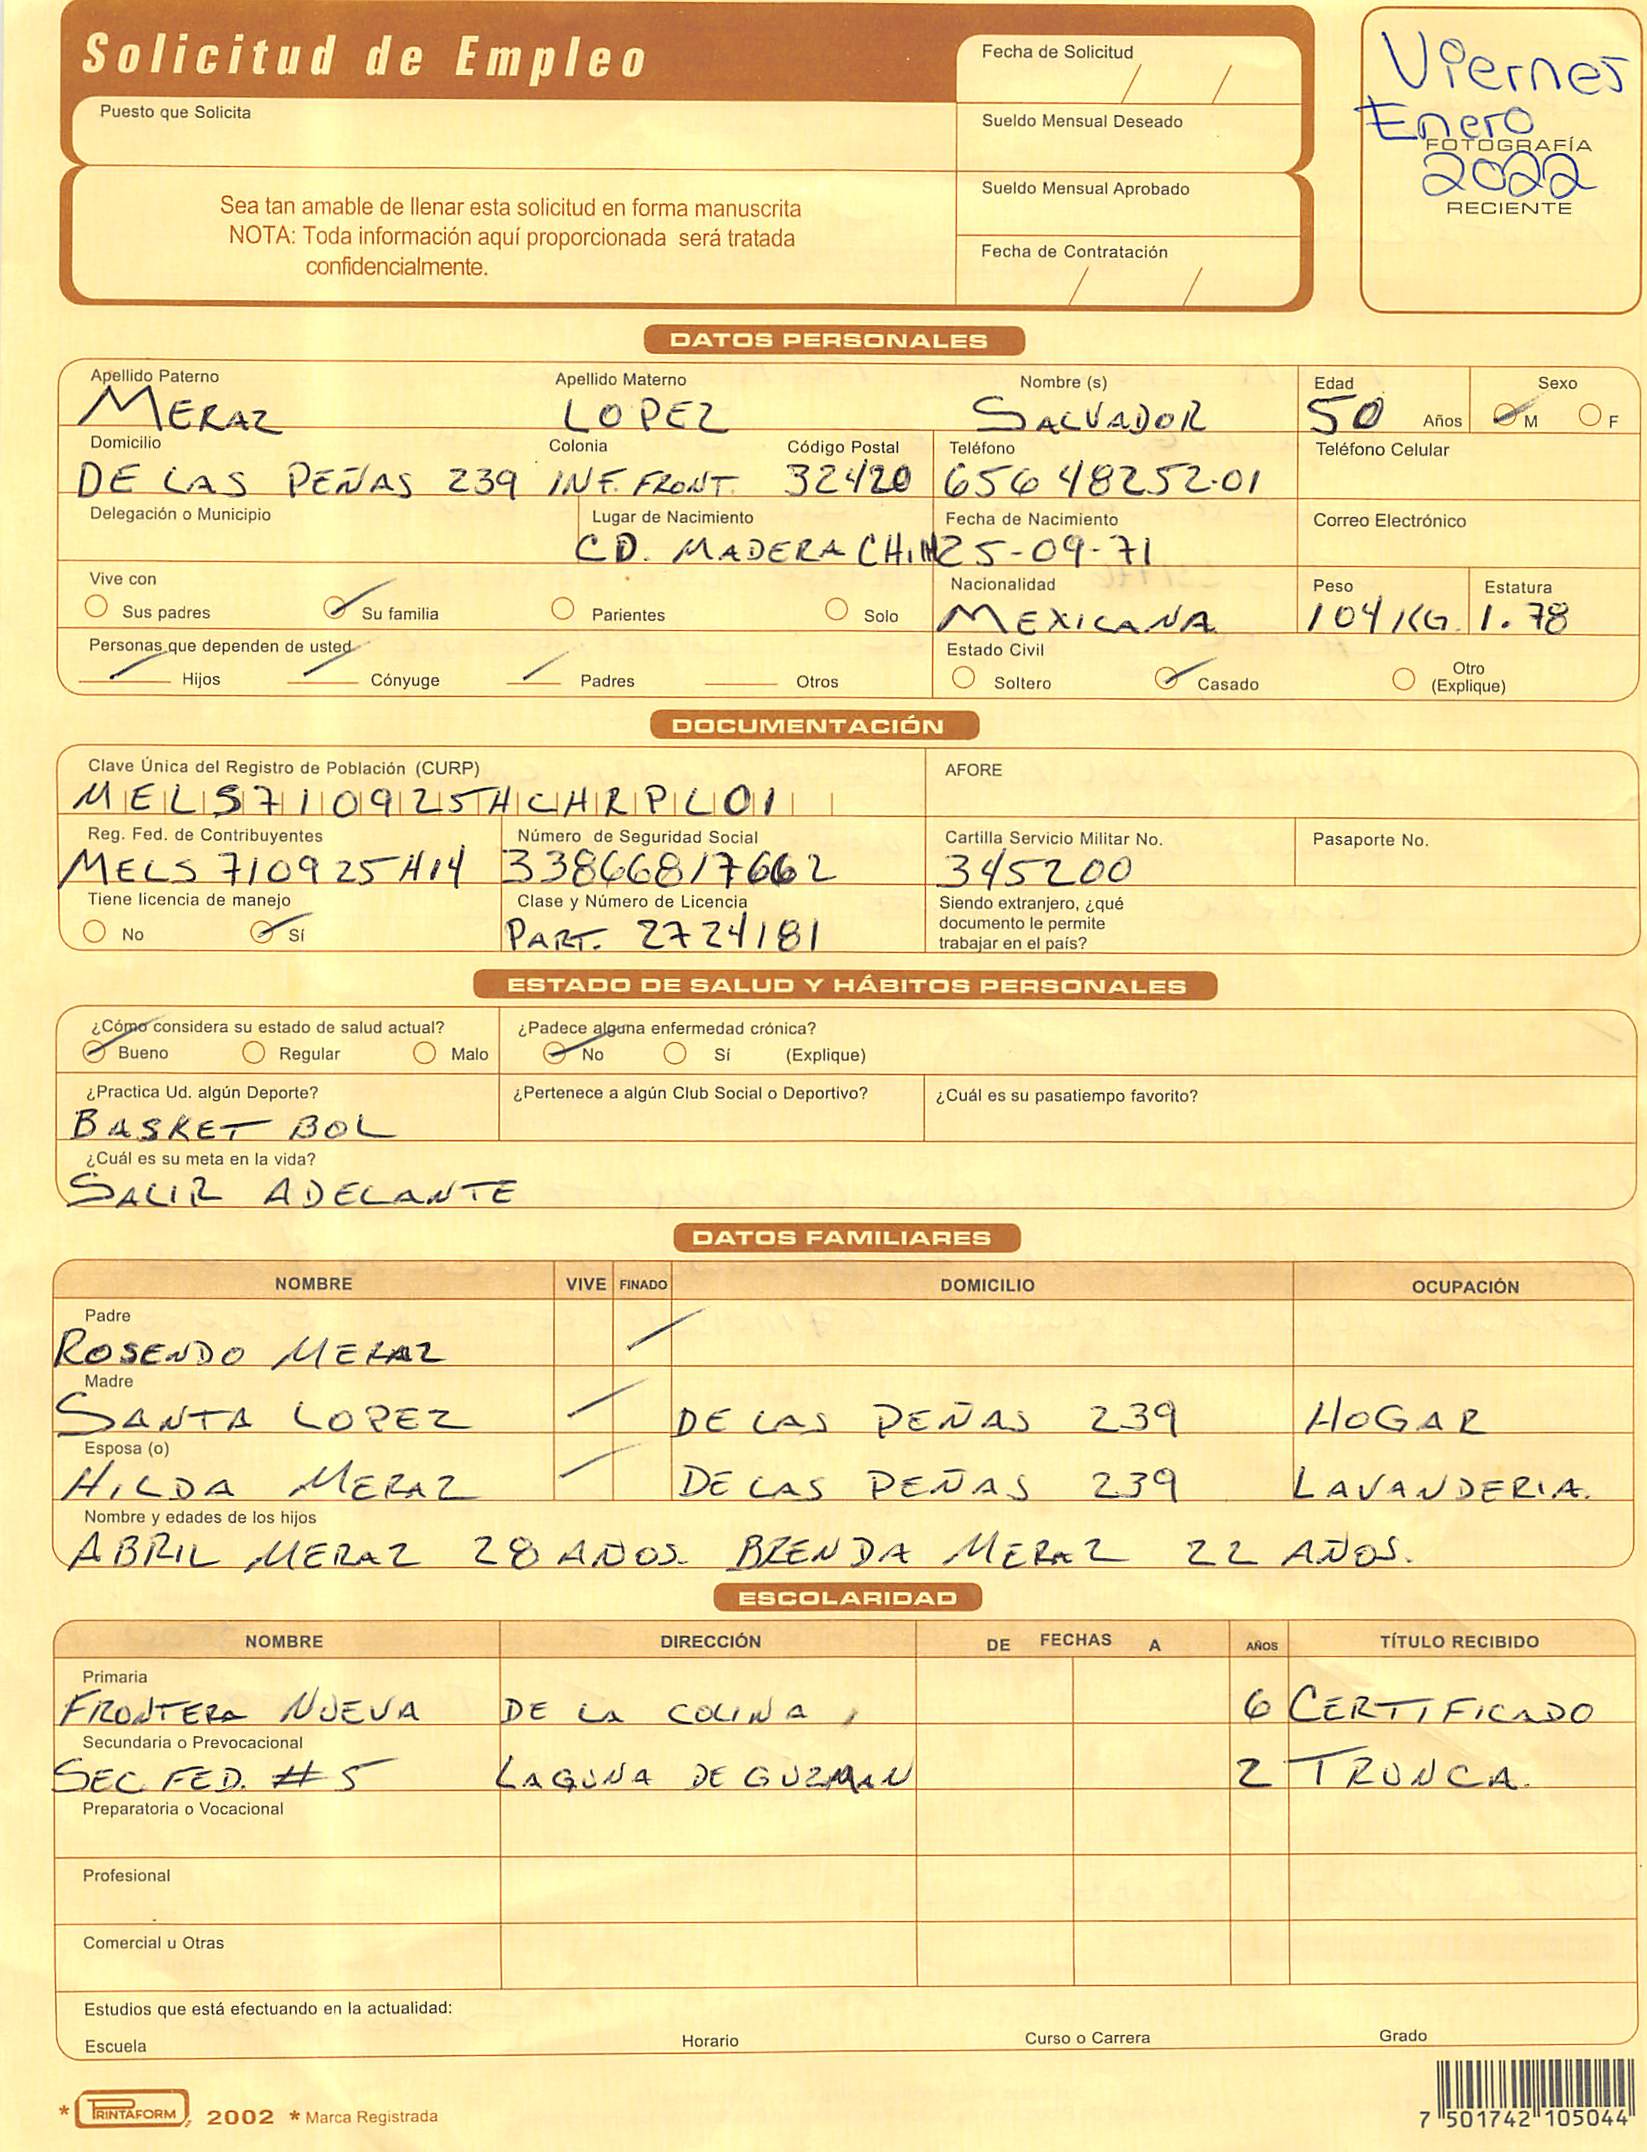 Solicitud de Empleo
Fecha de Solicitud
/ /
Viernes
Enero
2022
FOTOGRAFÍA
RECIENTE
Puesto que Solicita
Sueldo Mensual Deseado
Sea tan amable de llenar esta solicitud en forma manuscrita
NOTA: Toda información aquí proporcionada será tratada
confidencialmente.
Sueldo Mensual Aprobado
Fecha de Contratación
/ /
DATOS PERSONALES
Apellido Paterno Apellido Materno Nombre (s) Edad Sexo
MERAZ LOPEZ SALVADOR 50 Años M F
Domicilio Colonia Código Postal Teléfono Teléfono Celular
DE LAS PEÑAS 239 INF. FRONT. 32420 656 48252-01
Delegación o Municipio Lugar de Nacimiento Fecha de Nacimiento Correo Electrónico
CD. MADERA CHIH 25-09-71
Vive con Nacionalidad Peso Estatura
Sus padres Su familia Parientes Solo MEXICANA 104 KG. 1.78
Personas que dependen de usted Estado Civil
Hijos Cónyuge Padres Otros Soltero Casado Otro
(Explique)
DOCUMENTACIÓN
Clave Única del Registro de Población (CURP) AFORE
MELS710925HCHRPL01
Reg. Fed. de Contribuyentes Número de Seguridad Social Cartilla Servicio Militar No. Pasaporte No.
MELS 710925H14 33866817662 345200
Tiene licencia de manejo Clase y Número de Licencia Siendo extranjero, ¿qué
documento le permite
trabajar en el país?
No Sí PART. 2724181
ESTADO DE SALUD Y HÁBITOS PERSONALES
¿Cómo considera su estado de salud actual? ¿Padece alguna enfermedad crónica?
Bueno Regular Malo No Sí (Explique)
¿Practica Ud. algún Deporte? ¿Pertenece a algún Club Social o Deportivo? ¿Cuál es su pasatiempo favorito?
BASKET BOL
¿Cuál es su meta en la vida?
SALIR ADELANTE
DATOS FAMILIARES
NOMBRE VIVE FINADO DOMICILIO OCUPACIÓN
Padre
ROSENDO MERAZ
Madre
SANTA LOPEZ DE LAS PEÑAS 239 HOGAR
Esposa (o)
HILDA MERAZ DE LAS PEÑAS 239 LAVANDERIA.
Nombre y edades de los hijos
ABRIL MERAZ 28 AÑOS. BRENDA MERAZ 22 AÑOS.
ESCOLARIDAD
NOMBRE DIRECCIÓN DE FECHAS A AÑOS TÍTULO RECIBIDO
Primaria
FRONTERA NUEVA DE LA COLINA, 6 CERTIFICADO
Secundaria o Prevocacional
SEC. FED. #5 LAGUNA DE GUZMAN 2 TRUNCA.
Preparatoria o Vocacional
Profesional
Comercial u Otras
Estudios que está efectuando en la actualidad:
Escuela Horario Curso o Carrera Grado
* PRINTAFORM 2002 * Marca Registrada
7 501742 105044